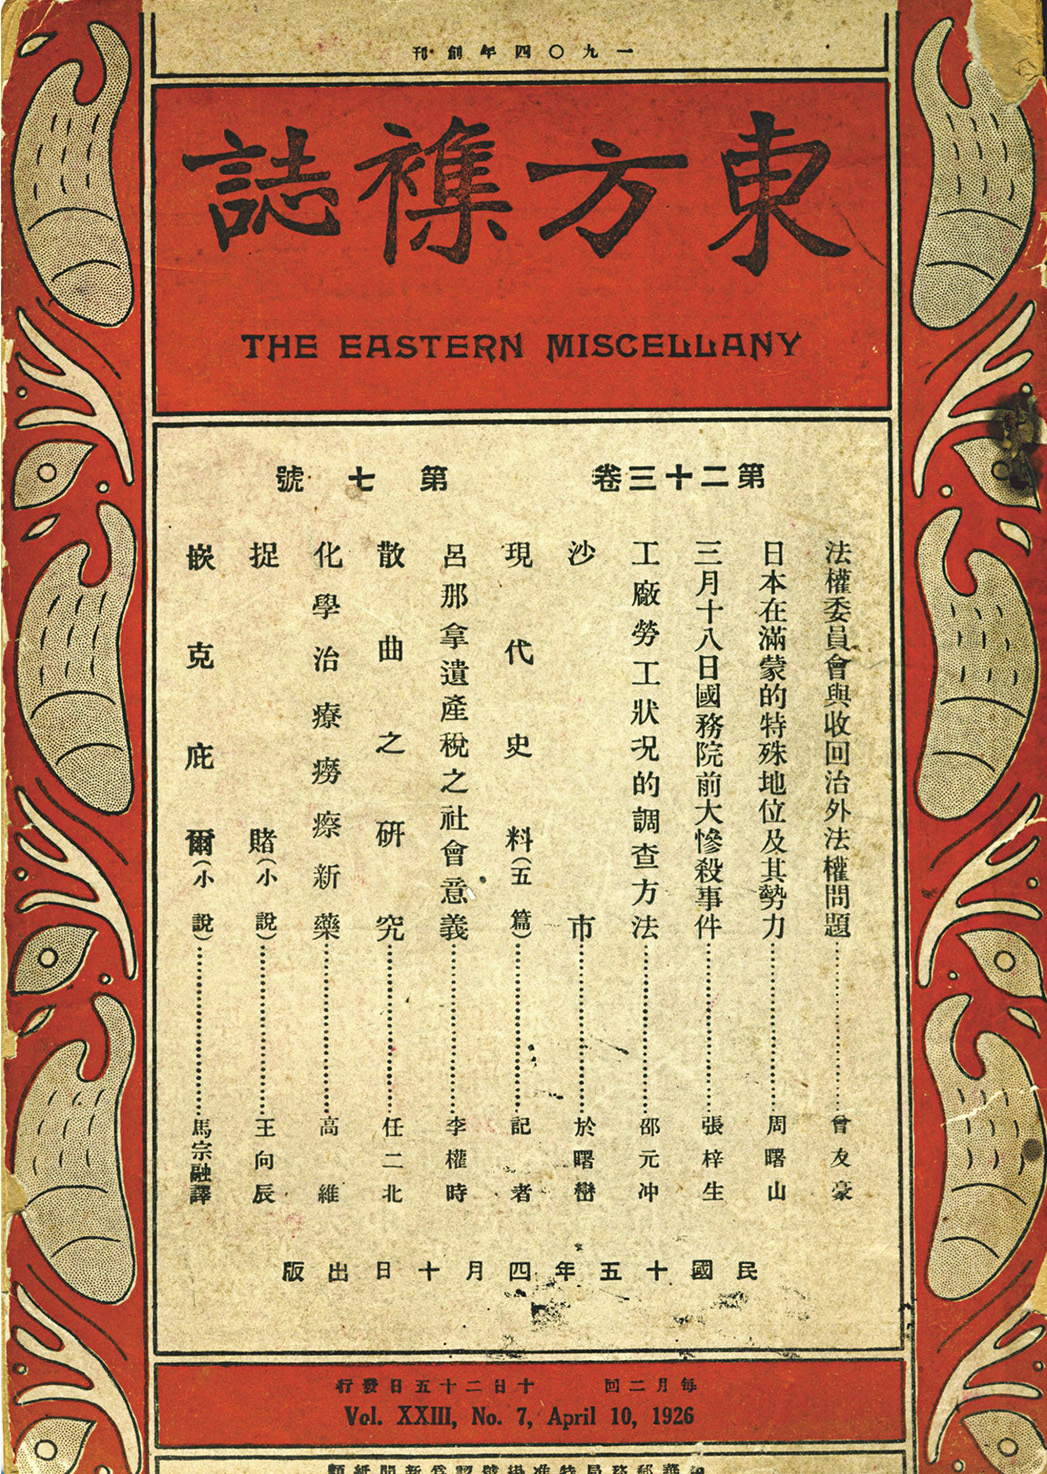 一九〇四年創刊
東方襍誌
THE EASTERN MISCELLANY
第二十三卷 第七號
法權委員會與收回治外法權問題……曾友豪
日本在滿蒙的特殊地位及其勢力……周曙山
三月十八日國務院前大慘殺事件……張梓生
工廠勞工狀況的調查方法……邵元冲
沙市……於曙巒
現代史料(五篇)……記者
呂那拿遺產稅之社會意義……李權時
散曲之研究……任二北
化學治療癆瘵新藥……高維
捉賭(小說)……王向辰
嵌克庇爾(小說)……馬宗融譯
民國十五年四月十日出版
每月二回 十日二十五日發行
Vol. XXIII, No. 7, April 10, 1926